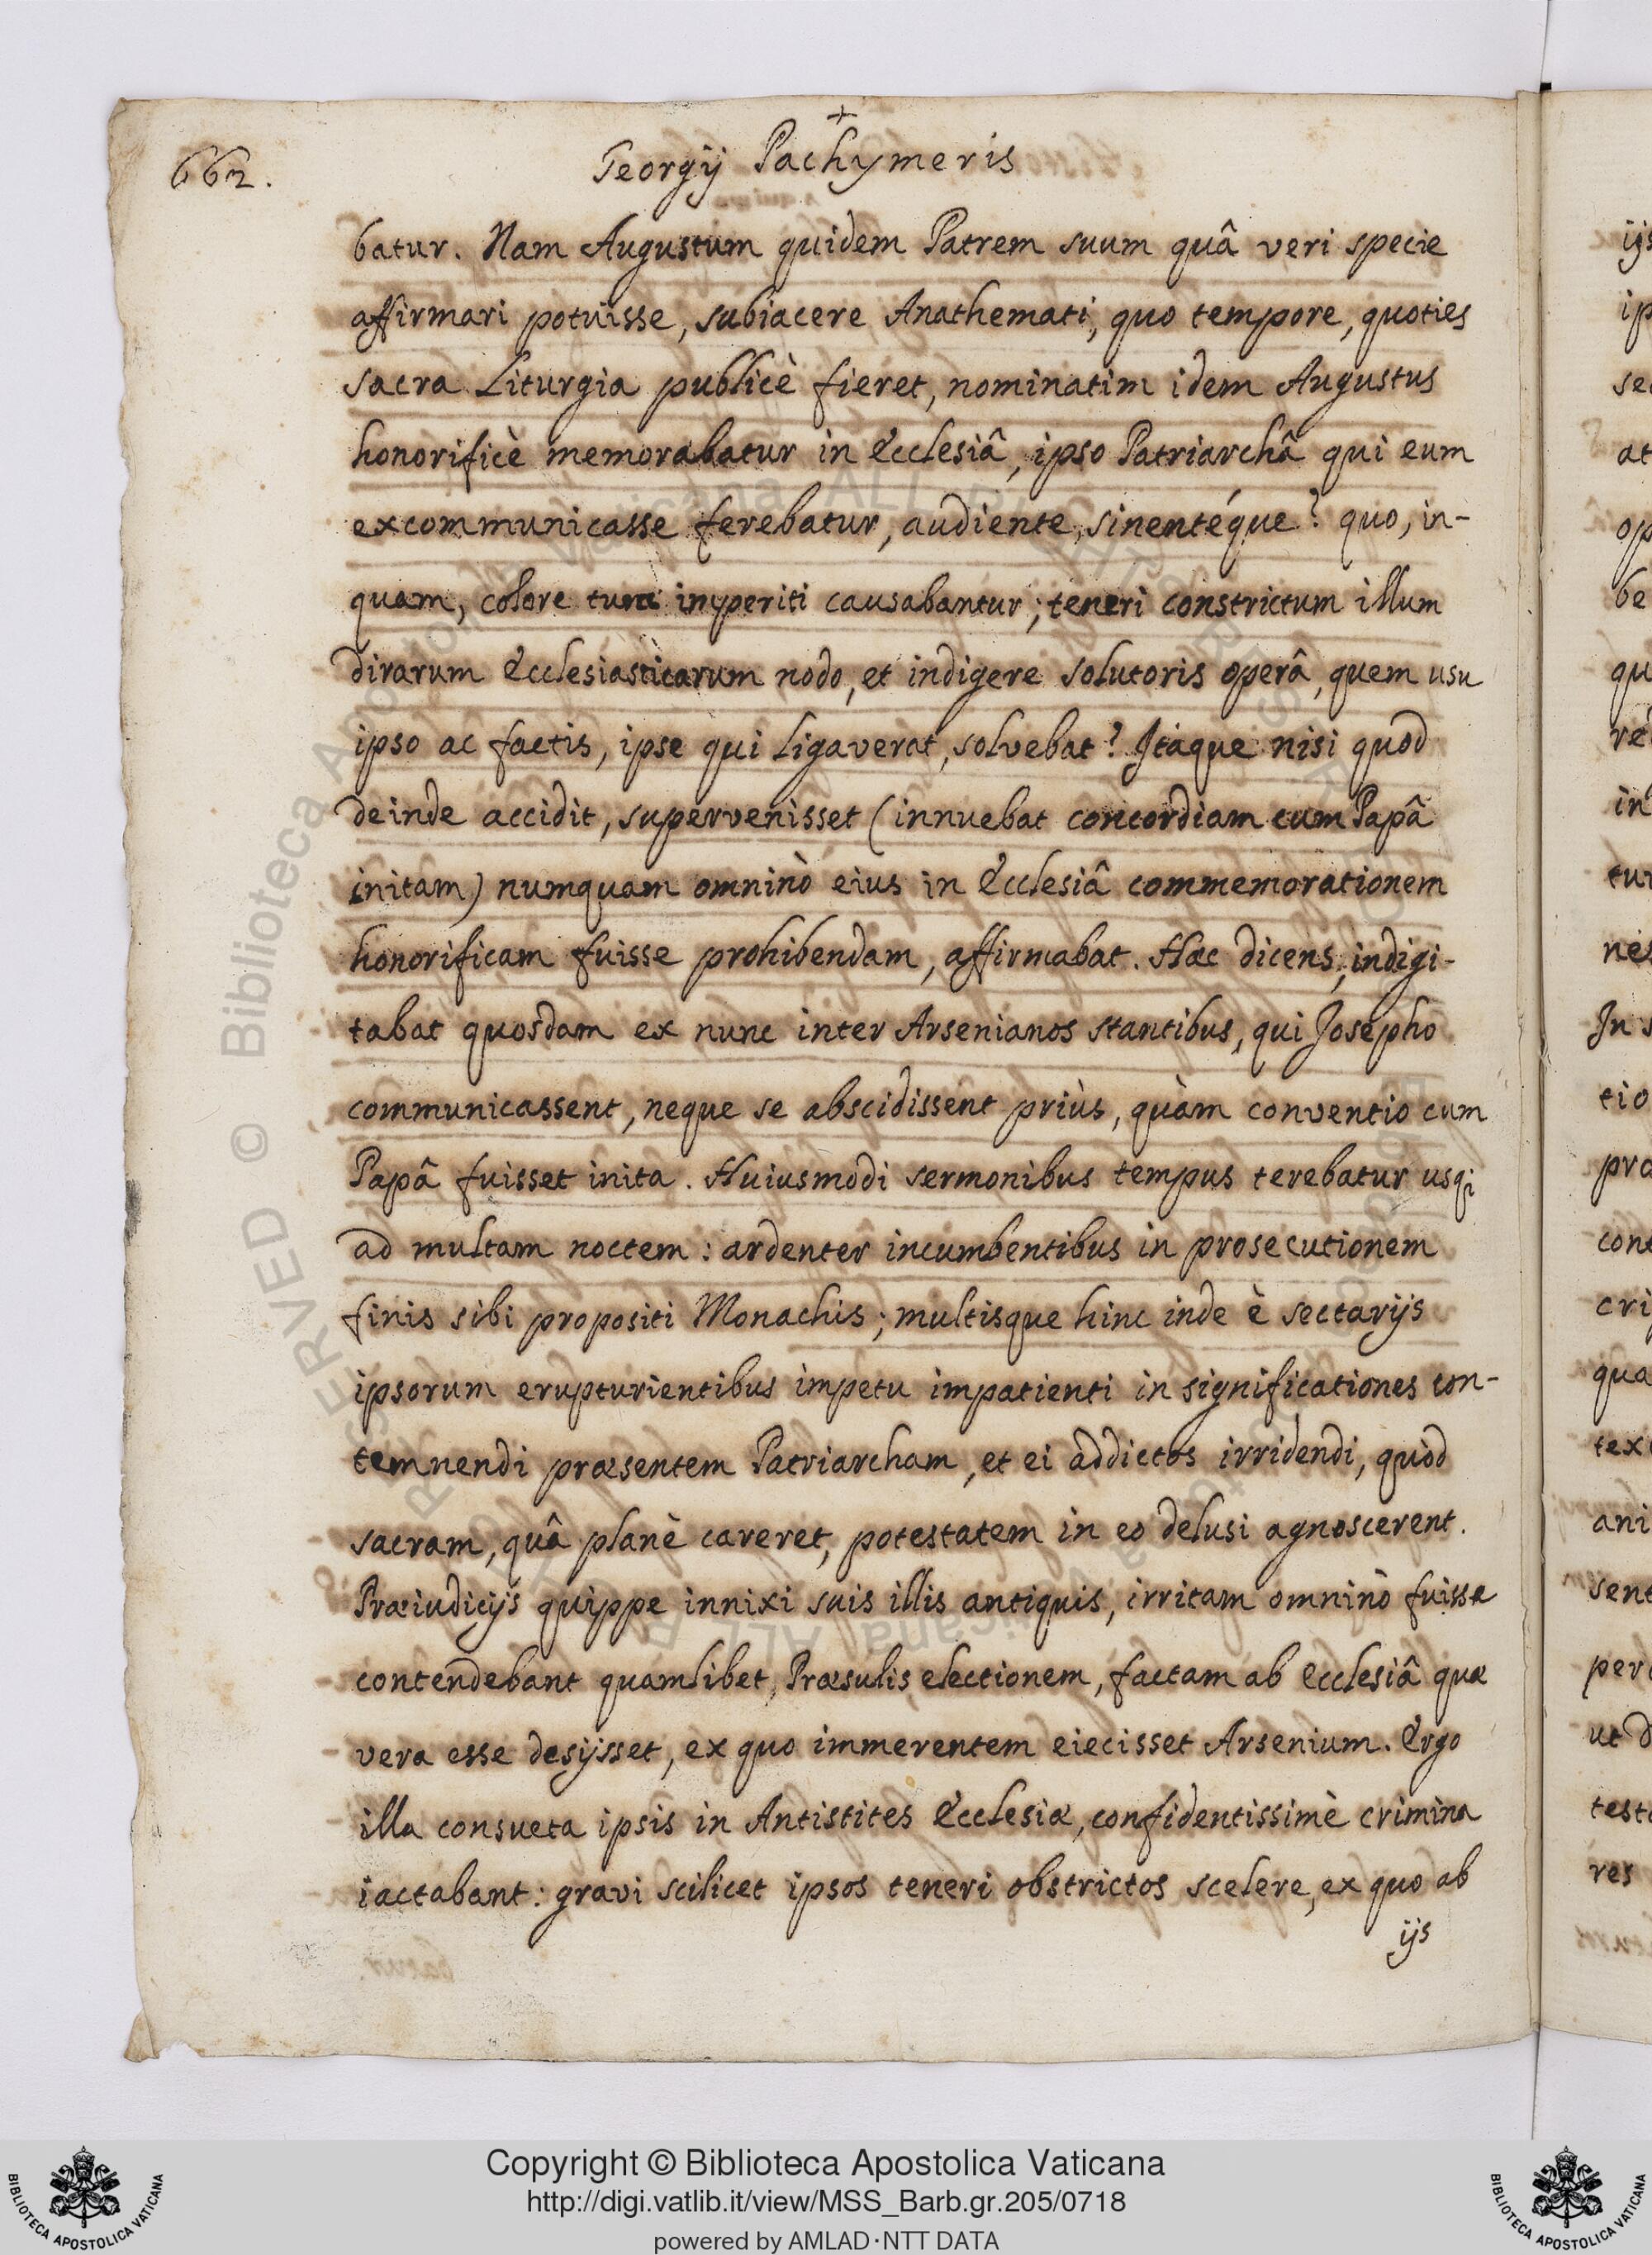 662.
Georgij Pachymeris
batur. Nam Augustum quidem Patrem suum quâ veri specie
affirmari potuisse, subiacere Anathemati, quo tempore, quoties
sacra Liturgia publicè fieret, nominatim idem Augustus
honorificè memorabatur in Ecclesiâ, ipso Patriarchâ qui eum
excommunicasse ferebatur, audiente, sinentéque? quo, in-
quam, colore imperiti causabantur; teneri constrictum illum
dirarum Ecclesiasticarum nodo, et indigere solutoris operâ, quem usu
ipso ac factis, ipse qui ligaverat, solvebat? Itaque nisi quod
deinde accidit, supervenisset (innuebat concordiam cum Papâ
initam) numquam omninò eius in Ecclesiâ commemorationem
honorificam fuisse prohibendam, affirmabat. Hæc dicens, indigi-
tabat quosdam ex nunc inter Arsenianos stantibus, qui Josepho
communicassent, neque se abscidissent priùs, quàm conventio cum
Papâ fuisset inita. Huiusmodi sermonibus tempus terebatur usq;
ad multam noctem: ardenter incumbentibus in prosecutionem
finis sibi propositi Monachis; multisque hinc inde è sectarijs
ipsorum erupturientibus impetu impatienti in significationes con-
temnendi præsentem Patriarcham, et ei addictos irridendi, quòd
sacram, quâ planè careret, potestatem in eo delusi agnoscerent.
Præiudicijs quippe innixi suis illis antiquis, irritam omninò fuisse
contendebant quamlibet Præsulis electionem, factam ab Ecclesiâ quæ
vera esse desijsset, ex quo immerentem eiecisset Arsenium. Ergo
illa consueta ipsis in Antistites Ecclesiæ, confidentissimè crimina
iactabant: gravi scilicet ipsos teneri obstrictos scelere, ex quo ab
ijs
Copyright © Biblioteca Apostolica Vaticana
http://digi.vatlib.it/view/MSS_Barb.gr.205/0718
powered by AMLAD·NTT DATA
BIBLIOTECA APOSTOLICA VATICANA
BIBLIOTECA APOSTOLICA VATICANA